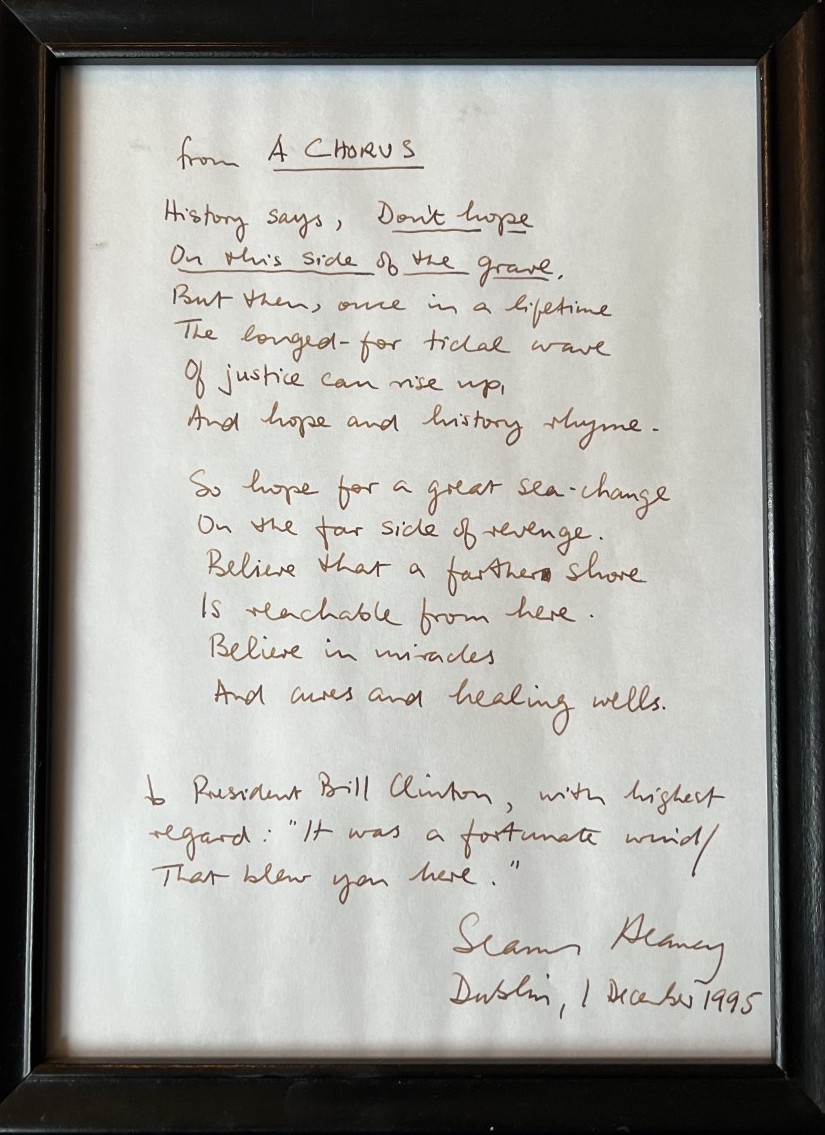 from A CHORUS
History says, Don't hope
On this side of the grave,
But then, once in a lifetime
The longed-for tidal wave
Of justice can rise up,
And hope and history rhyme.
So hope for a great sea-change
On the far side of revenge.
Believe that a farther shore
Is reachable from here.
Believe in miracles
And cures and healing wells.
to President Bill Clinton, with highest
regard: "It was a fortunate wind/
That blew you here."
Seamus Heaney
Dublin, 1 December 1995